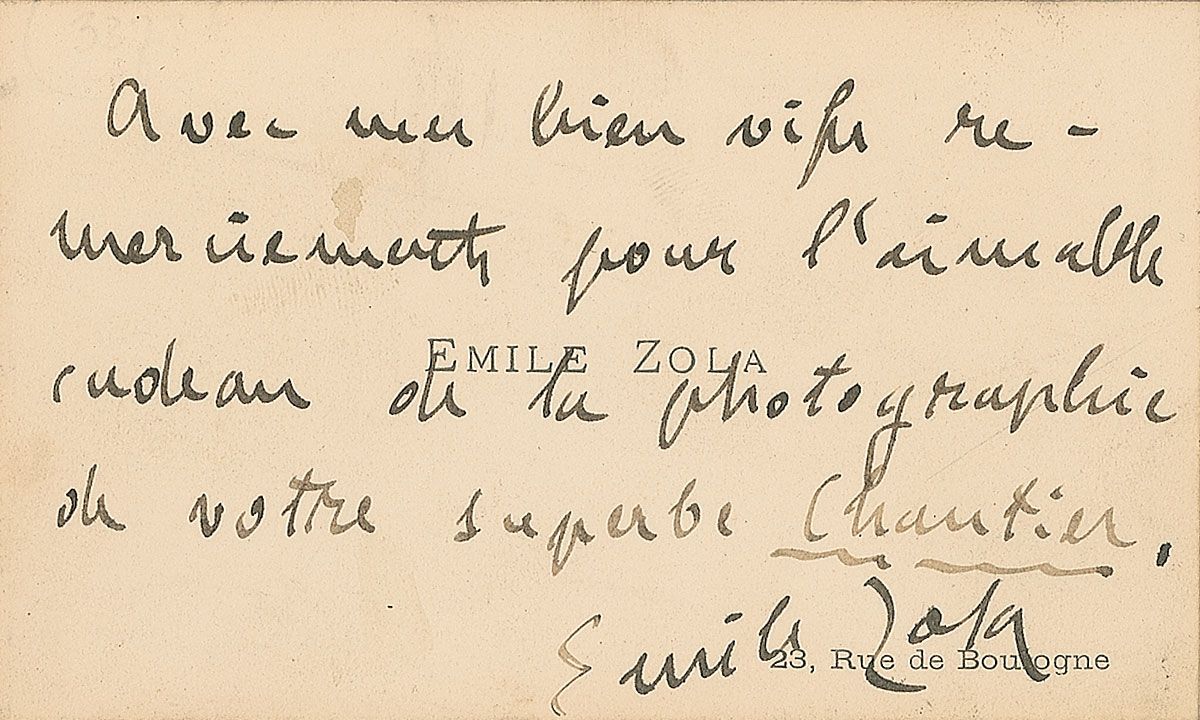 Avec mes bien vifs re-
merciements pour l'aimable
EMILE ZOLA
cadeau de la photographie
de votre superbe Chantier.
Emile Zola
23, Rue de Boulogne